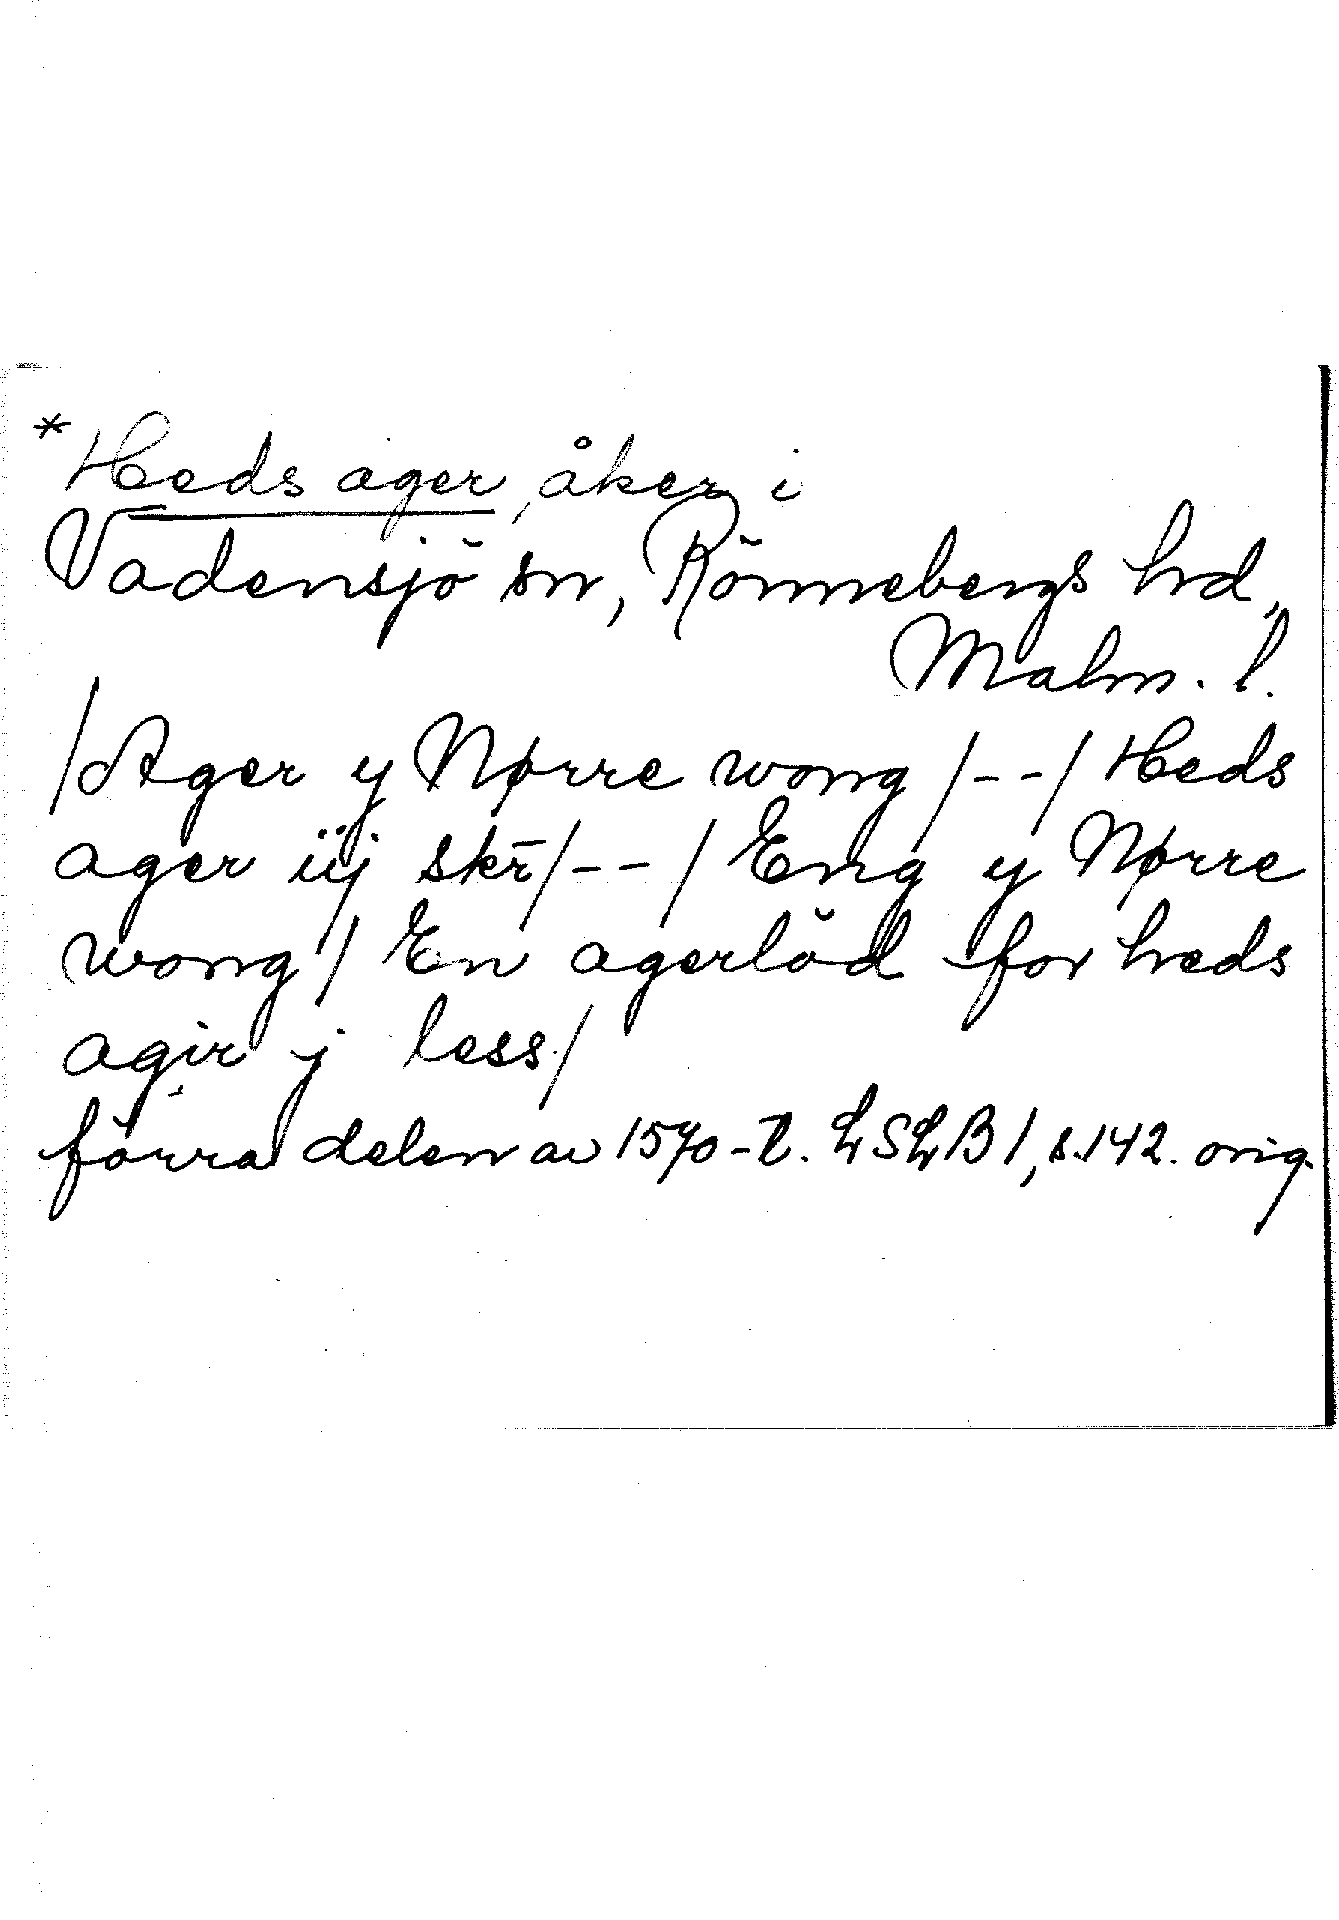 *Heds ager, åker i
Vadensjö sn, Rönnebergs hrd,
Malm. l.
/Ager y Nørre wong /--/ Heds
ager iij skr̄/--/ Eng y Nørre
wong/ En agerlöd for heds
agir j less/
förra delen av 1570-t. LSLB1, s.142. orig.